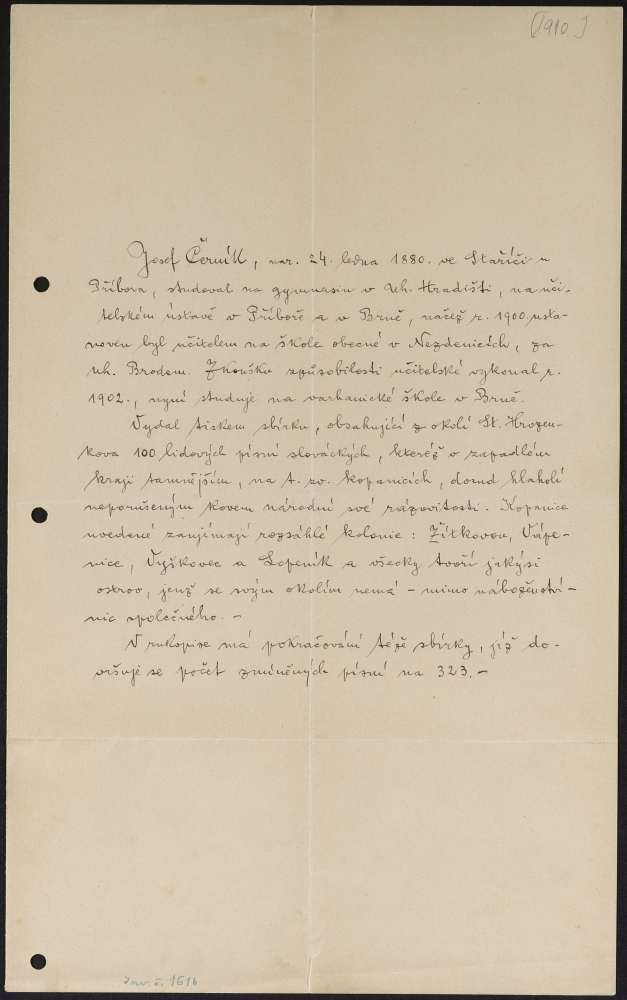 [1910]
Josef Černík, nar. 24. ledna 1880. ve Staříči u
Příbora, studoval na gymnasiu v Uh. Hradišti, na uči-
telském ústavě v Příboře a v Brně, načež r. 1900. usta-
noven byl učitelem na škole obecné v Nezdenicích, za
Uh. Brodem. Zkoušku způsobilosti učitelské vykonal r.
1902., nyní studuje na varhanické škole v Brně.
Vydal tiskem sbírku, obsahující z okolí St. Hrozen-
kova 100 lidových písní slováckých, kteréž v zapadlém
kraji tamnějším, na t. zv. kopanicích, dosud hlaholí
neporušeným kovem národní své rázovitosti. Kopanice
uvedené zaujímají rozsáhlé kolonie: Žítkovou, Vápe-
nice, Vyškovec a Lopeník a všecky tvoří jakýsi
ostrov, jenž se svým okolím nemá – mimo náboženství –
nic společného. –
V rukopise má pokračování téže sbírky, jíž do-
vršuje se počet zmíněných písní na 323. –
Inv. č. 1516